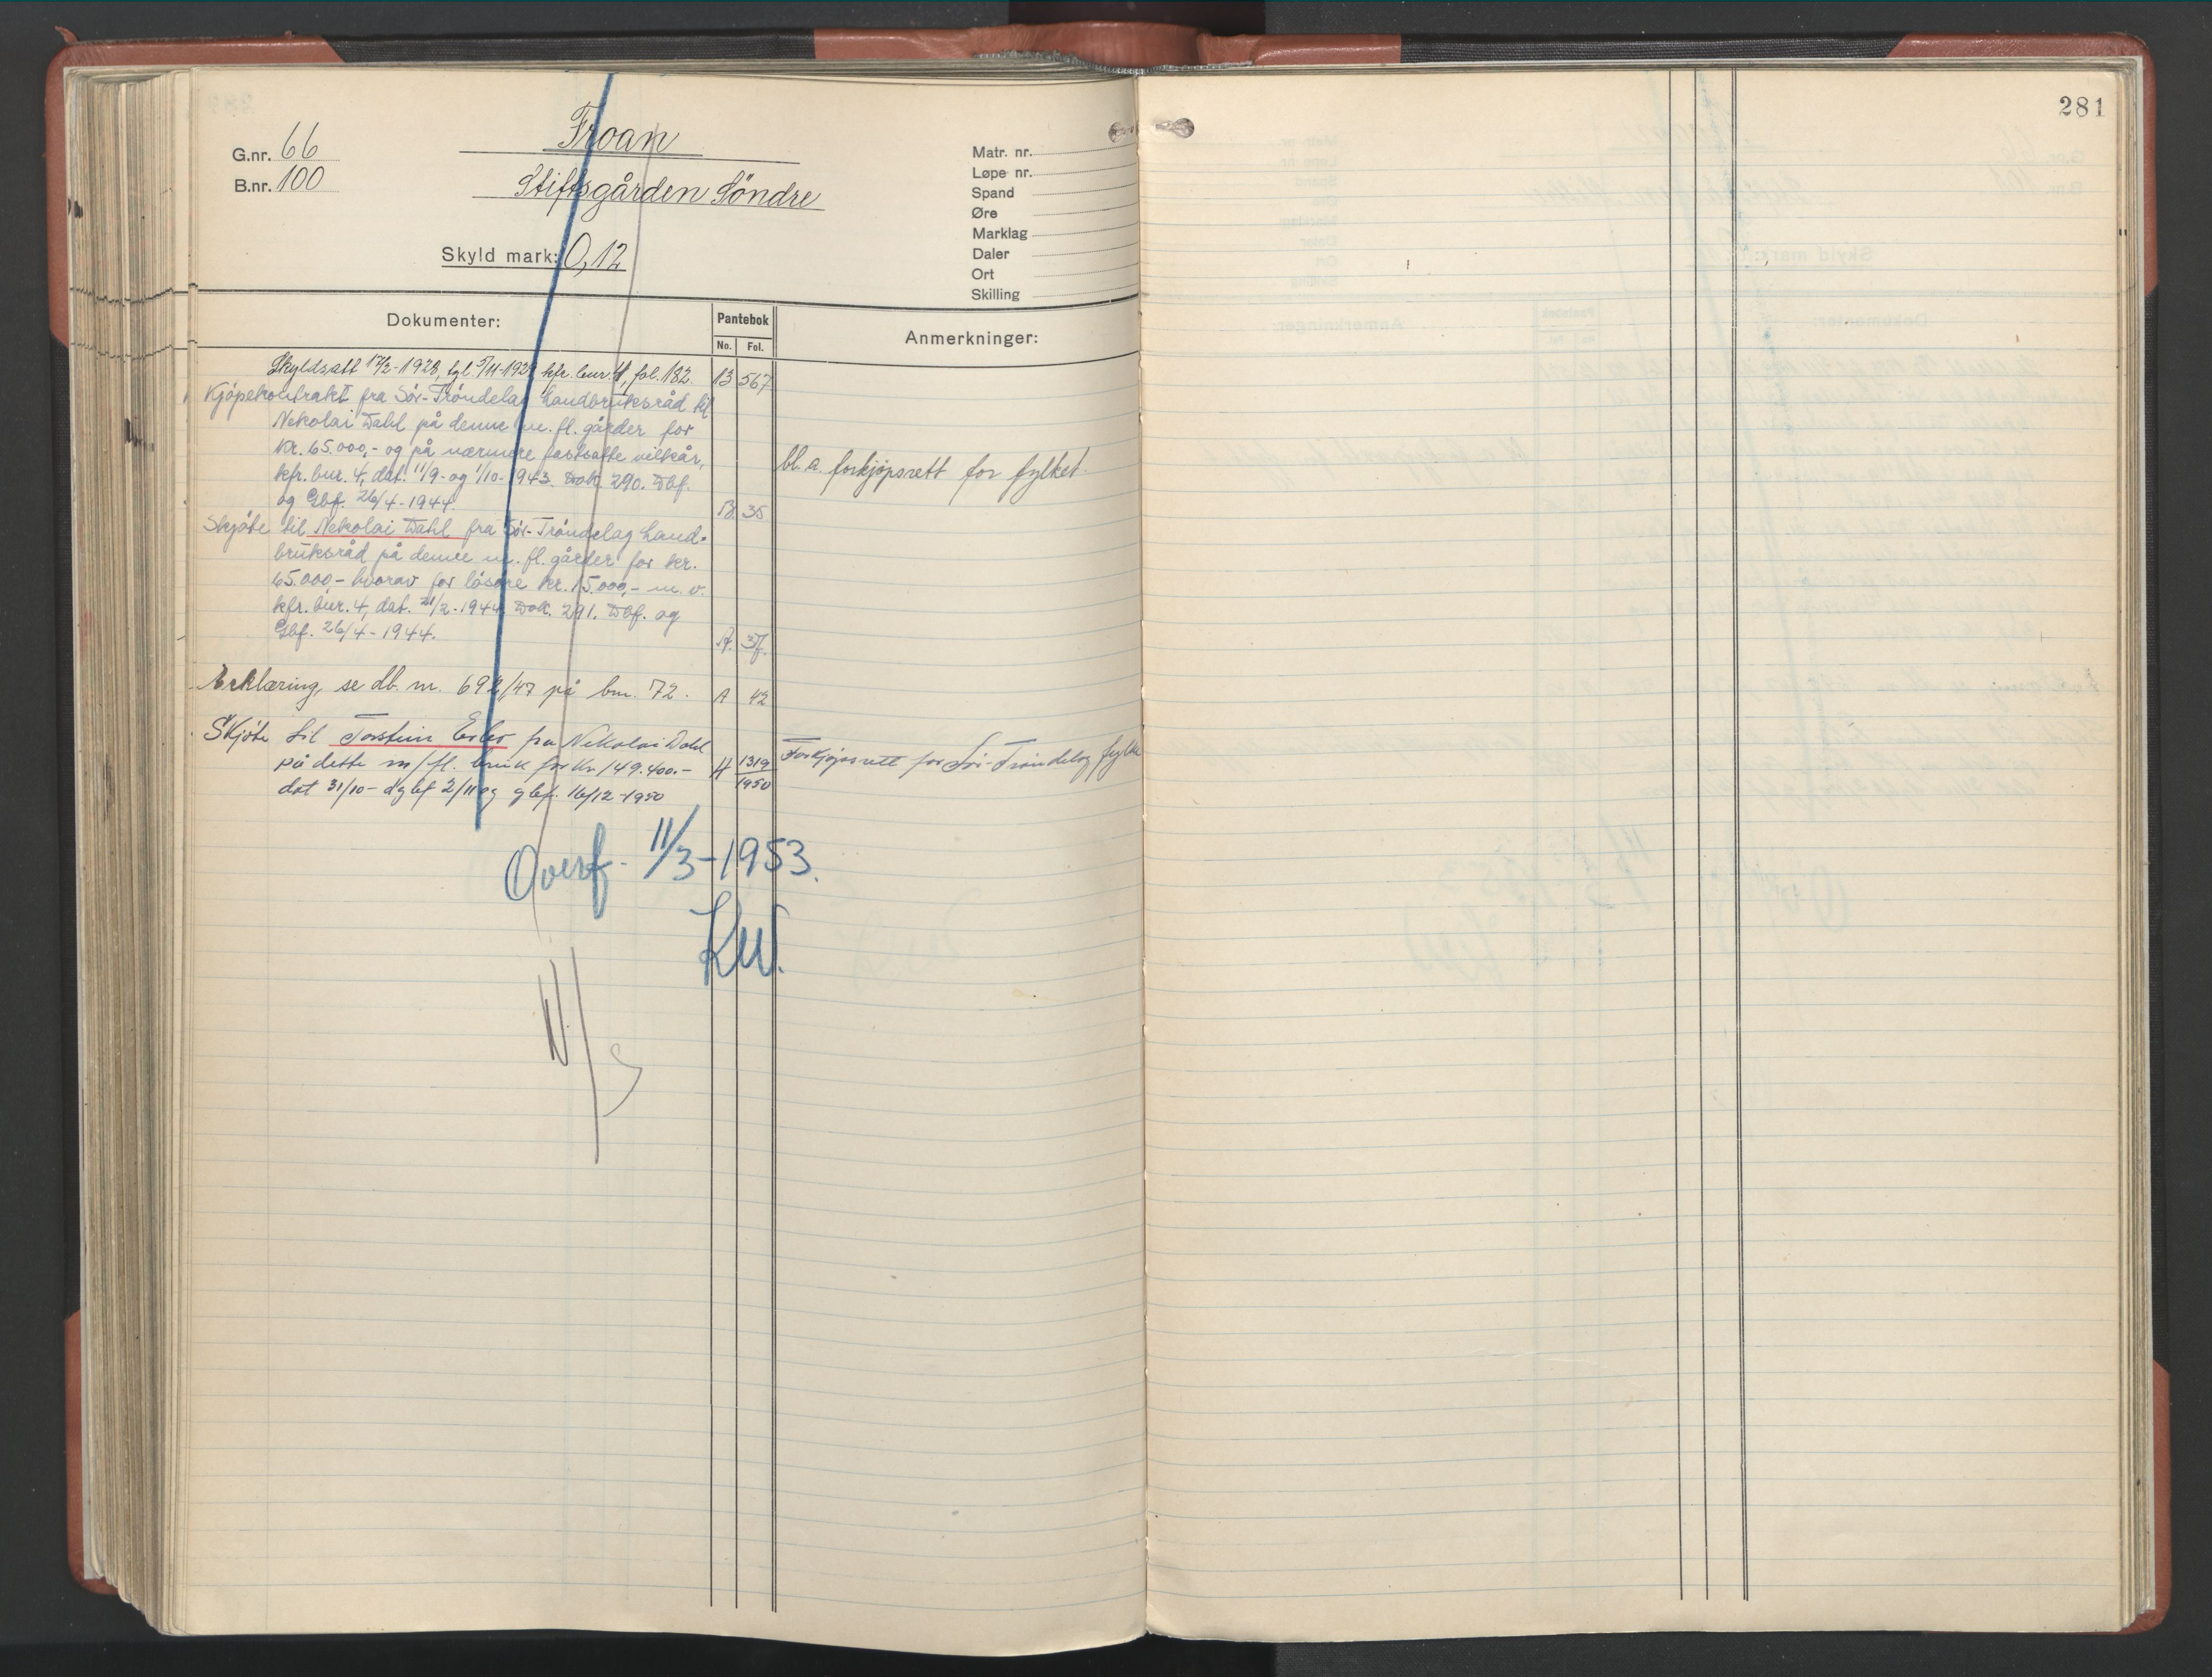 281
G.nr. 66
B.nr. 100
Froan
Stiftsgården Söndre
Skyld mark: 0,12
Matr. nr.
Løpe nr.
Spand
Øre
Marklag
Daler
Ort
Skilling
Dokumenter:
Pantebok
No. Fol.
Anmerkninger:
Skyldsatt 17/2-1928, tgl. 5/11-1928 kfr. bnr. 4, fol. 182. 13 567
Kjöpekontrakt fra Sör-Tröndelag Landbruksråd til
Nekolai Dahl på denne m. fl. gårder for
Kr. 65.000,- og på nærmere fastsatte vilkår,
kfr. bnr. 4, dat. 11/9- og 1/10-1943. Dok. 290. Dbf.
og Gbf. 26/4-1944. 35
bl. a. forkjøpsrett for fylket.
Skjöte til Nekolai Dahl fra Sör-Tröndelag Land-
bruksråd på denne m. fl. gårder for kr.
65.000- hvorav for lösöre kr. 15.000,- m. v.
kfr. bnr. 4, dat. 21/2-1944 Dok. 291. Dbf. og
Gbf. 26/4-1944. A. 37.
Erklæring, se db. nr. 692/47 på bnr. 72. A 42
Skjöte til Torstein Ervo fra Nikolai Dahl
på dette m/fl. bruk for Kr 149.400.- H 1319
1950
dat 31/10- dgbf 2/11 og gbf. 16/12-1950
Forkjøpsrett for Sör-Tröndelag fylke
Overf. 11/3-1953.
KW.